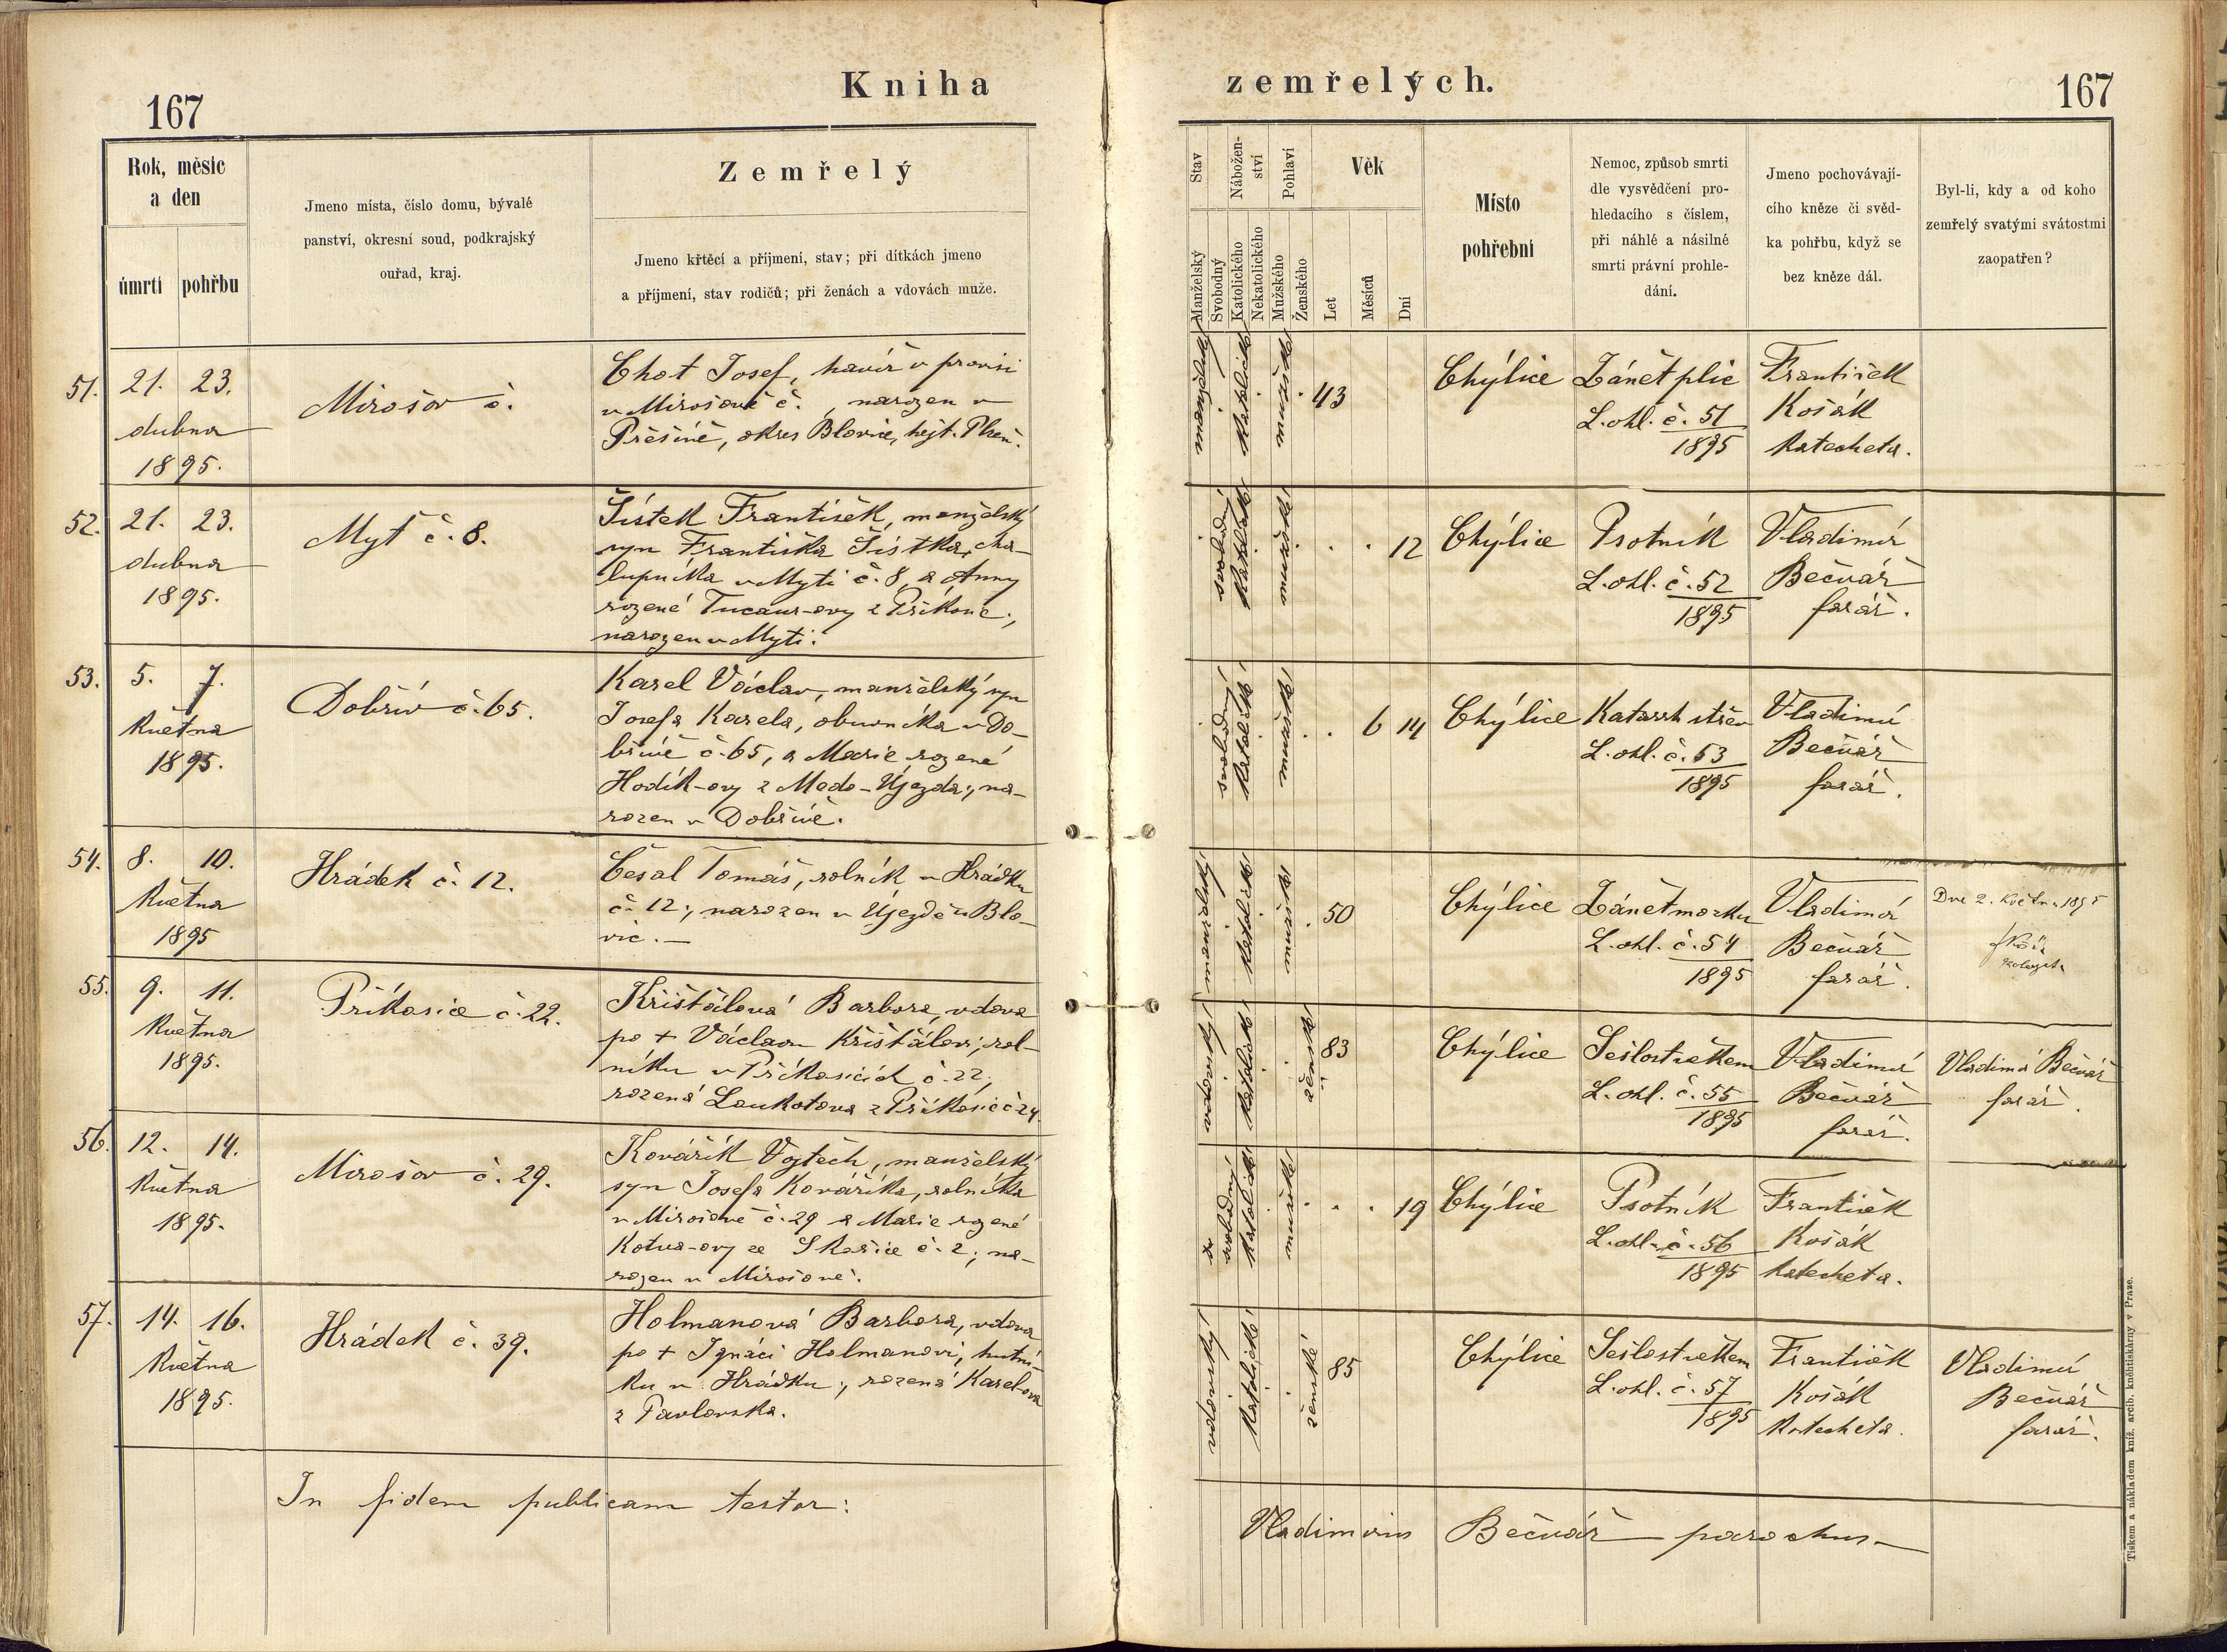 Kniha zemřelých.
167
167
Rok, měsíc
a den
úmrtí
pohřbu
Jmeno místa, číslo domu, bývalé
panství, okresní soud, podkrajský
ouřad, kraj.
Zemřelý
Jmeno křtěcí a příjmení, stav; při dítkách jmeno
a příjmení, stav rodičů; při ženách a vdovách muže.
Stav
Nábožen-
ství
Pohlaví
Věk
Manželský
Svobodný
Katolického
Nekatolického
Mužského
Ženského
Let
Měsíců
Dní
Místo
pohřební
Nemoc, způsob smrti
dle vysvědčení pro-
hledacího s číslem,
při náhlé a násilné
smrti právní prohle-
dání.
Jmeno pochovávají-
cího kněze či svěd-
ka pohřbu, když se
bez kněze dál.
Byl-li, kdy a od koho
zemřelý svatými svátostmi
zaopatřen?
51.
21. 23.
dubna
1895.
Mirošov č.
Chot Josef, havíř v provisi
v Mirošově č. , narozen v
Přešíně, okres Blovice, hejt. Plzeň.
manželský
katolické
mužské
43
Chýlice
Zánět plic
L. ohl. č. 51
1895
František
Košák
katecheta.
52.
21. 23.
dubna
1895.
Myť č. 8.
Šístek František, manželský
syn Františka Šístka, cha-
lupníka v Myti č. 8, a Anny
rozené Tucaur-ovy z Příkosic;
narozen v Myti.
svobodný
katolické
mužské
12
Chýlice
Psotník
L. ohl. č. 52
1895
Vladimír
Bečvář
farář.
53.
5. 7.
května
1895.
Dobřív č. 65.
Karel Václav, manželský syn
Josefa Karela, obuvníka v Do-
břívě č. 65, a Marie rozené
Hodík-ovy z Medo-Újezda; na-
rozen v Dobřívě.
svobodný
katolické
mužské
6 14
Chýlice
Katarrh střev
L. ohl. č. 53
1895
Vladimír
Bečvář
farář.
54.
8. 10.
května
1895
Hrádek č. 12.
Česal Tomáš, rolník v Hrádku
č. 12; narozen v Újezdě u Blo-
vic.—
manželský
katolické
mužské
50
Chýlice
Zánět mozku
L. ohl. č. 54
1895
Vladimír
Bečvář
farář.
Dne 2. května 1895
55.
9. 11.
května
1895.
Příkosice č. 22.
Křišťálová Barbora, vdova
po + Václavu Křišťálovi, rol-
níku v Příkosicích č. 22,
rozená Loukotova z Příkosic č 24.
vdovský
katolické
ženské
83
Chýlice
Sešlost věkem
L. ohl. č. 55
1895
Vladimír
Bečvář
farář.
Vladimír Bečvář
farář.
56.
12. 14.
května
1895.
Mirošov č. 29.
Kovářík Vojtěch, manželský
syn Josefa Kováříka, rolníka
v Mirošově č. 29 a Marie rozené
Kotva-ovy ze Skořice č. 2; na-
rozen v Mirošově.
svobodný
katolické
mužské
19
Chýlice
Psotník
L. ohl. č. 56
1895
František
Košák
katecheta.
57.
14. 16.
května
1895.
Hrádek č. 39.
Holmanová Barbora, vdova
po + Ignáci Holmanovi, hutní-
ku v Hrádku; rozená Karel-ova
z Pavlovska.
vdovský
katolické
ženské
85
Chýlice
Sešlost věkem
L. ohl. č. 57
1895
František
Košák
katecheta.
Vladimír
Bečvář
farář.
In fidem publicam testor:
Vladimirus Bečvář parochus
Tiskem a nákladem kníž. arcib. kněhtiskárny v Praze.